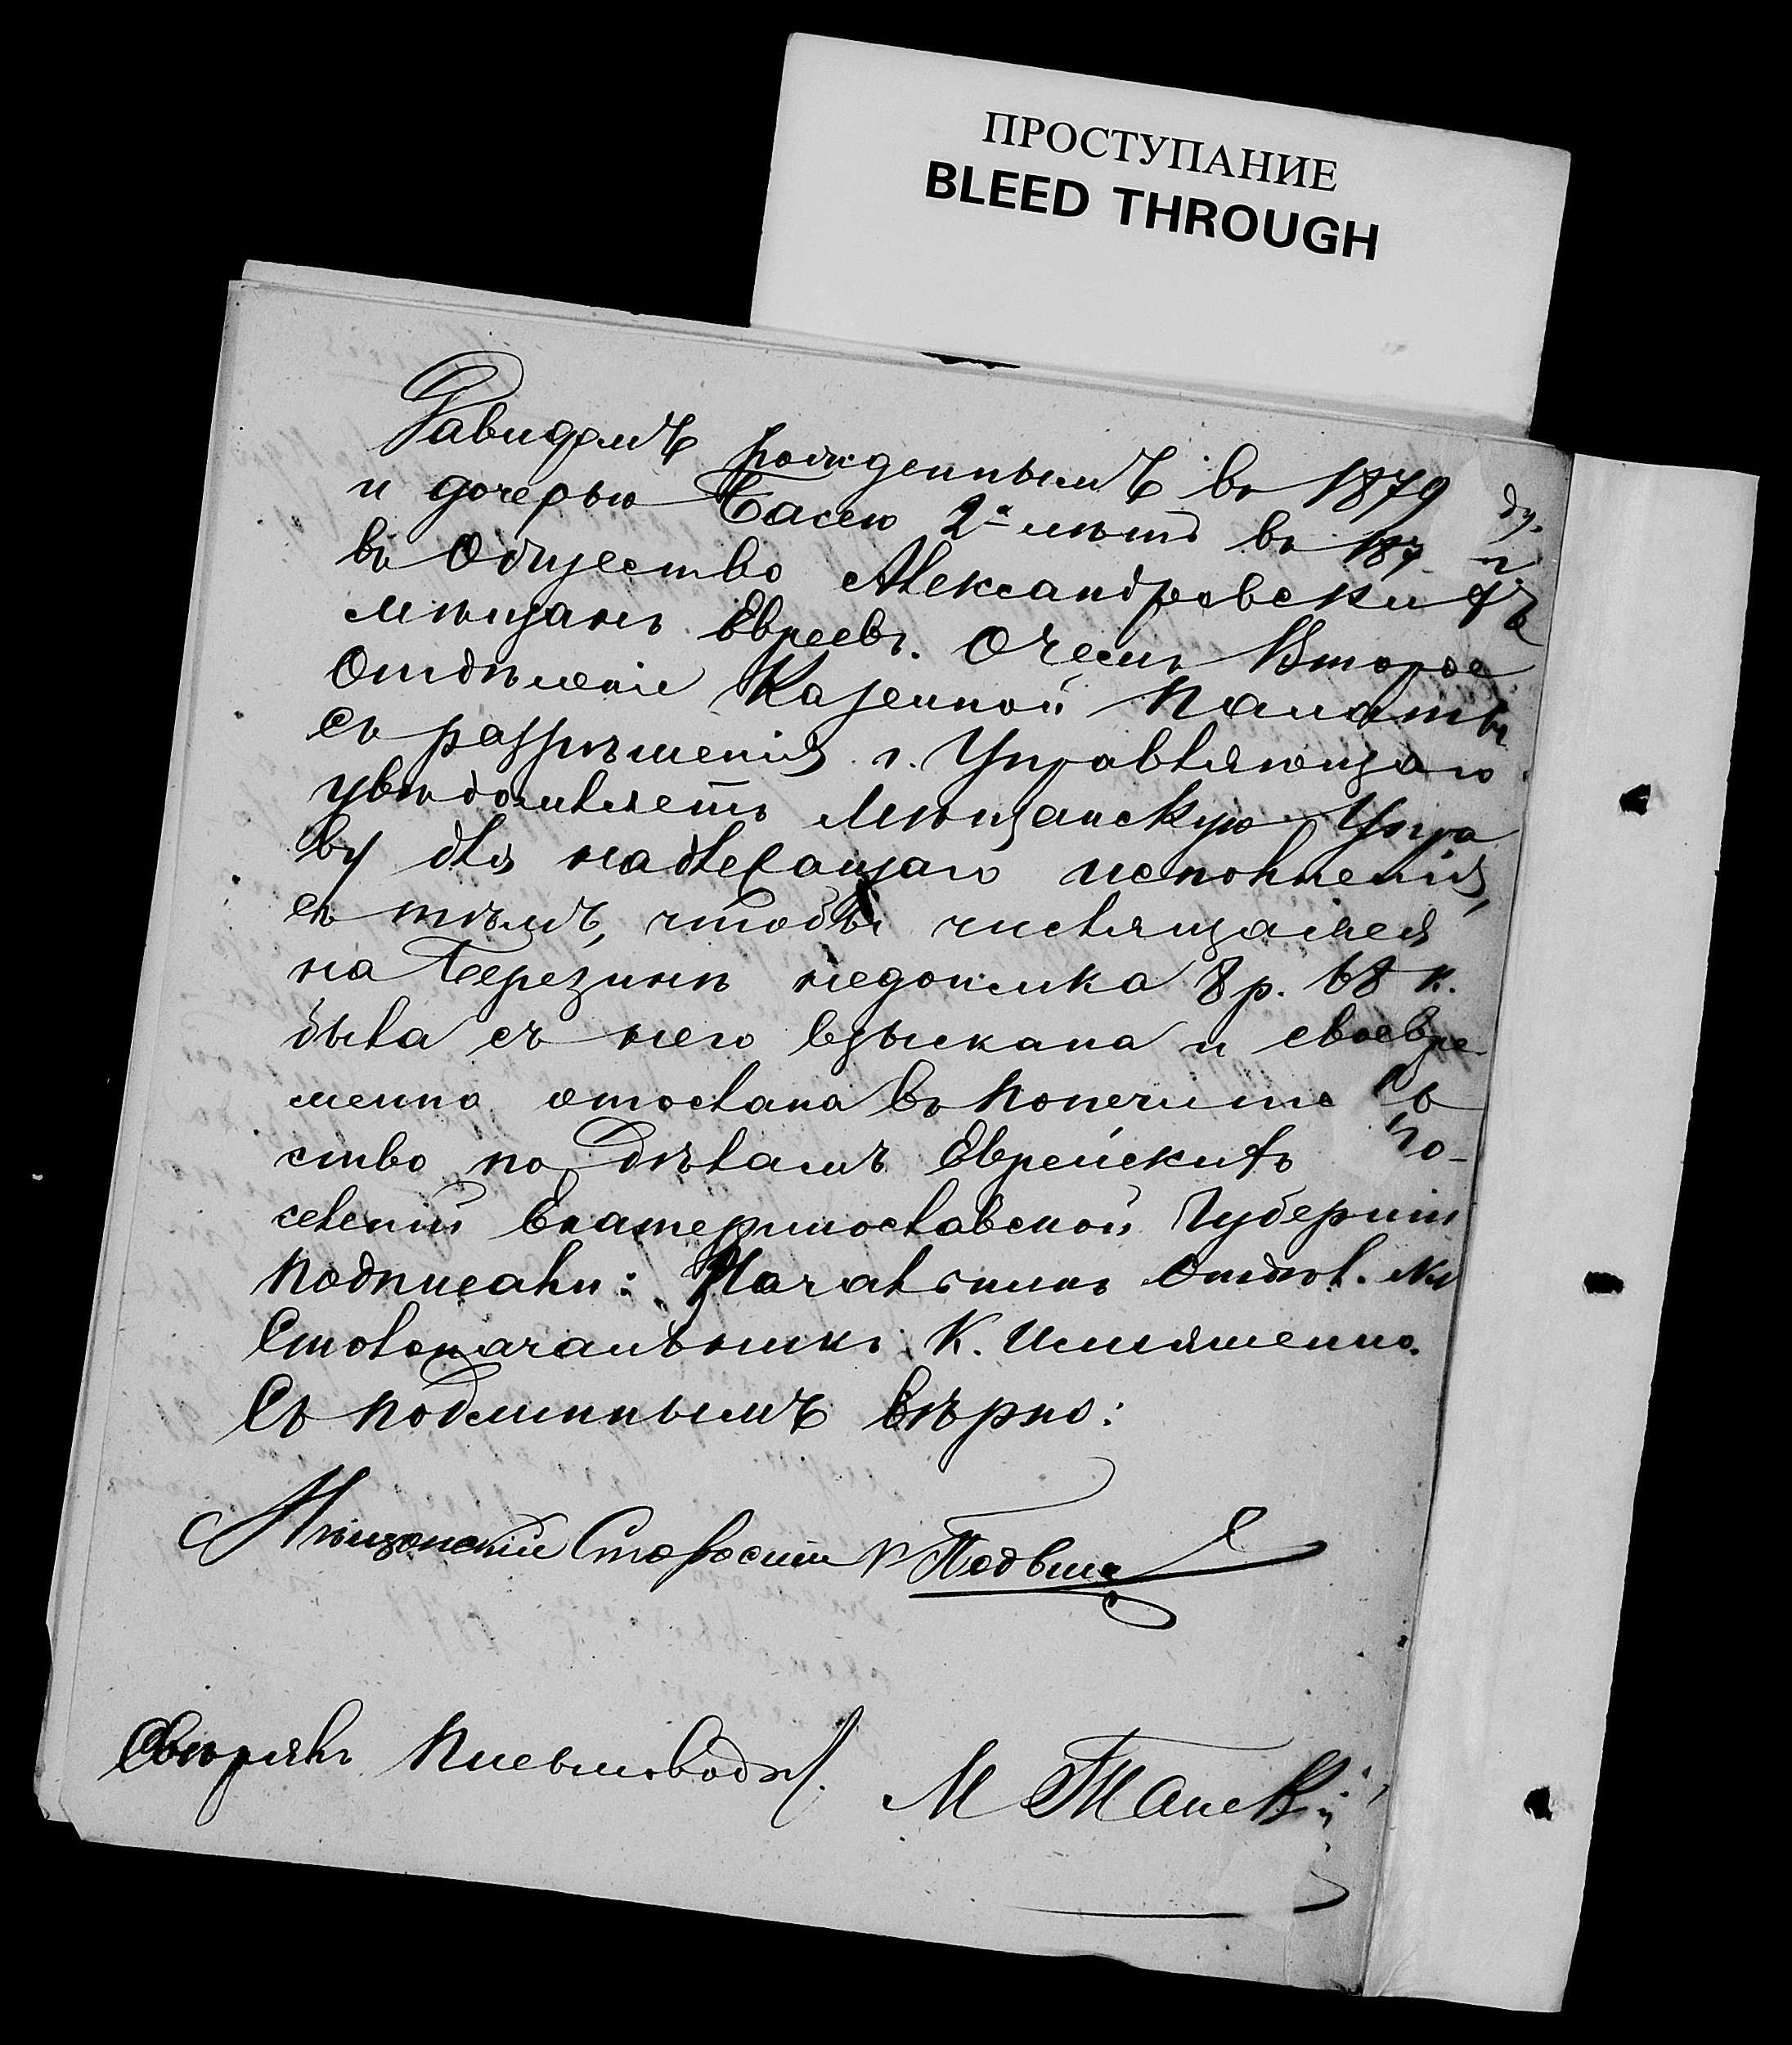 ПРОСТУПАНИЕ
BLEED THROUGH
Давидомъ рожденнымъ въ 1879 ду.
и дочерью Басею 2х лѣтъ въ 187
въ Общество Александровскихъ
мѣщанъ Евреевъ. О чемъ Второе
Отдѣленіе Казенной Палаты
съ разрѣшенія г. Управляющаго
увѣдомляетъ Мѣщанскую Упра
ву для надлежащаго исполненія,
съ тѣмъ, чтобы числящаяся
на Березинѣ недоимка 8 р. 68 к.
была съ него взыскана и своевре-
менно отослана въ Попечитель
ство по дѣламъ Еврейскихъ по-
селеній Екатеринославской Губерніи
Подписали: Начальникъ Отдѣл.
Столоначальникъ К.
Съ подлиннымъ вѣрно:
Мѣщанскій Староста
Свѣрялъ Письмоводит. М